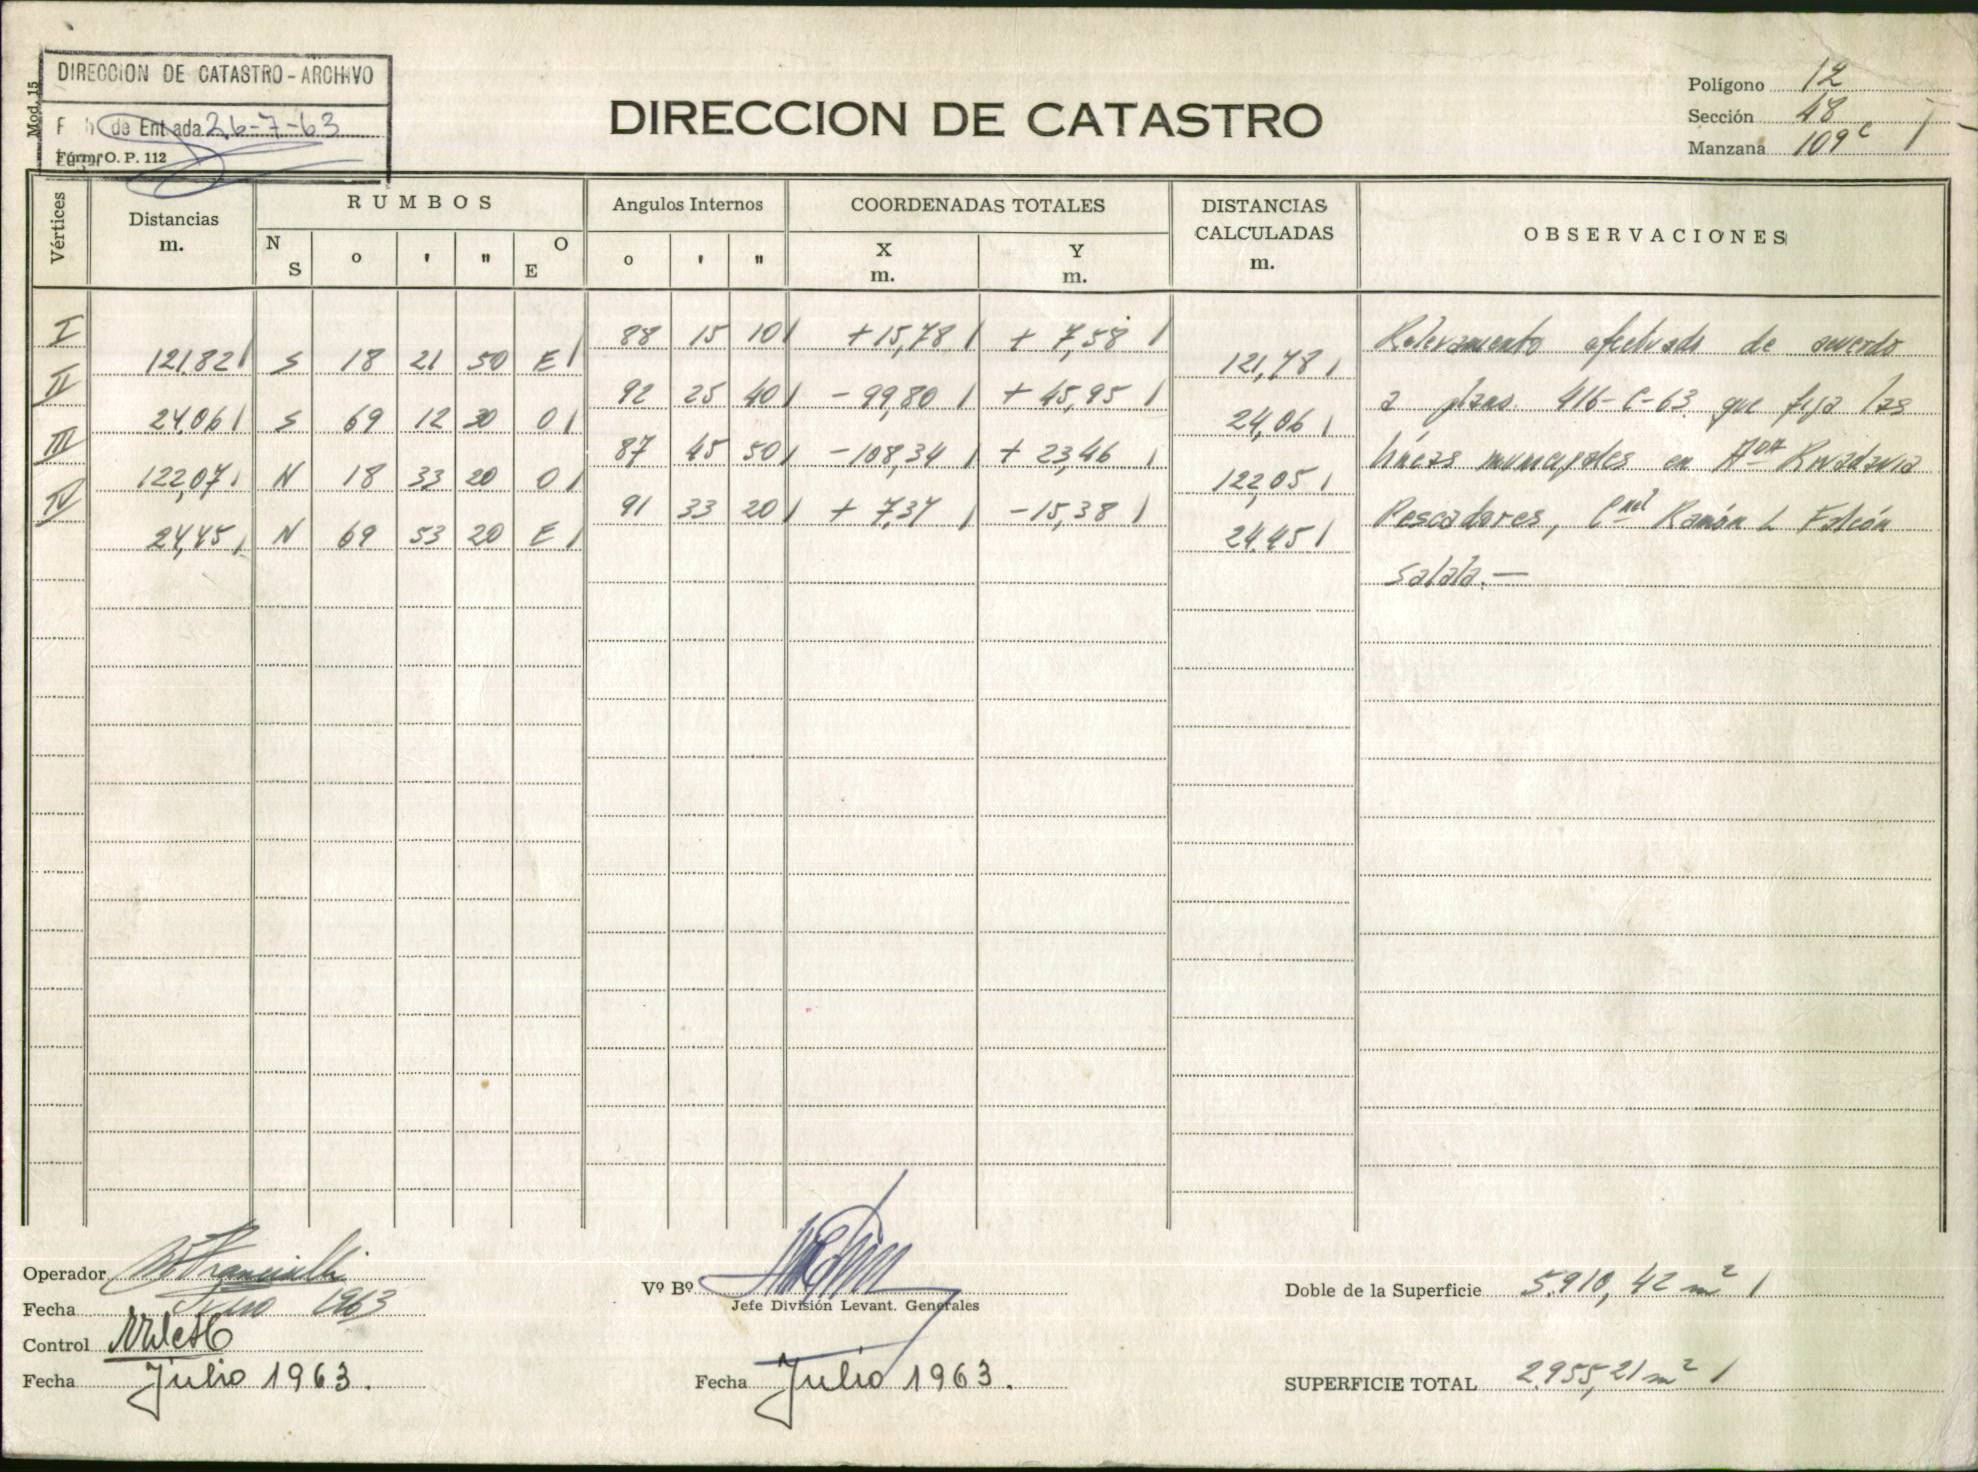 Mod. 15
DIRECCION DE CATASTRO - ARCHIVO
de Entrada 26-7-63
Form. O. P. 112
DIRECCION DE CATASTRO
Polígono 12
Sección 48
Manzana 109c
Vértices
Distancias
m.
RUMBOS
N
S
o
'
"
O
E
Angulos Internos
o
'
"
COORDENADAS TOTALES
X
m.
Y
m.
DISTANCIAS
CALCULADAS
m.
OBSERVACIONES
I 88 15 10 +15,78 + 7,58
121,82 S 18 21 50 E 121,78
II 92 25 40 -99,80 + 45,95
24,06 S 69 12 30 O 24,06
III 87 45 50 -108,34 + 23,46
122,07 N 18 33 20 O 122,05
IV 91 33 20 + 7,37 -15,38
24,45 N 69 53 20 E 24,45
Relevamiento efectuado de acuerdo
a plano 416-C-63 que fija las
líneas municipales en Avda Rivadavia
Pescadores, Cnel Ramón L Falcón
Salala.—
Operador
Fecha 1963
Control
Fecha Julio 1963.
Vº Bº
Jefe División Levant. Generales
Fecha Julio 1963.
Doble de la Superficie 5.910,42 m2
SUPERFICIE TOTAL 2.955,21 m2